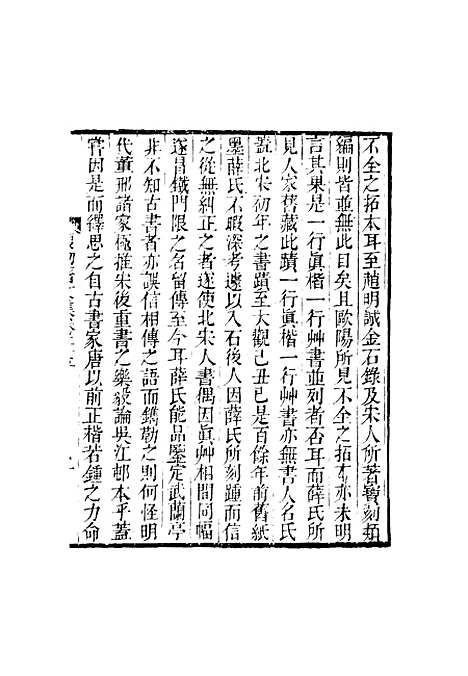 不全之拓本耳至趙明誠金石錄及宋人所著寶刻類
編則皆並無此目矣且歐陽所見不全之拓本亦未明
言其果是一行眞楷一行艸書並列者否耳而薛氏所
見人家舊藏此蹟一行眞楷一行艸書亦無書人名氏
蓋北宋初年之書蹟至大觀己丑已是百餘年前舊紙
墨薛氏不暇深考遽以入石後人因薛氏所刻踵而信
之從無糾正之者遂使北宋人書偶因眞艸相間同幅
遂冒鐵門限之名留傳至今耳薛氏能品鑒定武蘭亭
非不知古書者亦誤信相傳之語而鐫勒之則何怪明
代董邢諸家極推宋後重書之樂毅論吳江邨本乎蓋
嘗因是而繹思之自古書家唐以前正楷若鍾之力命